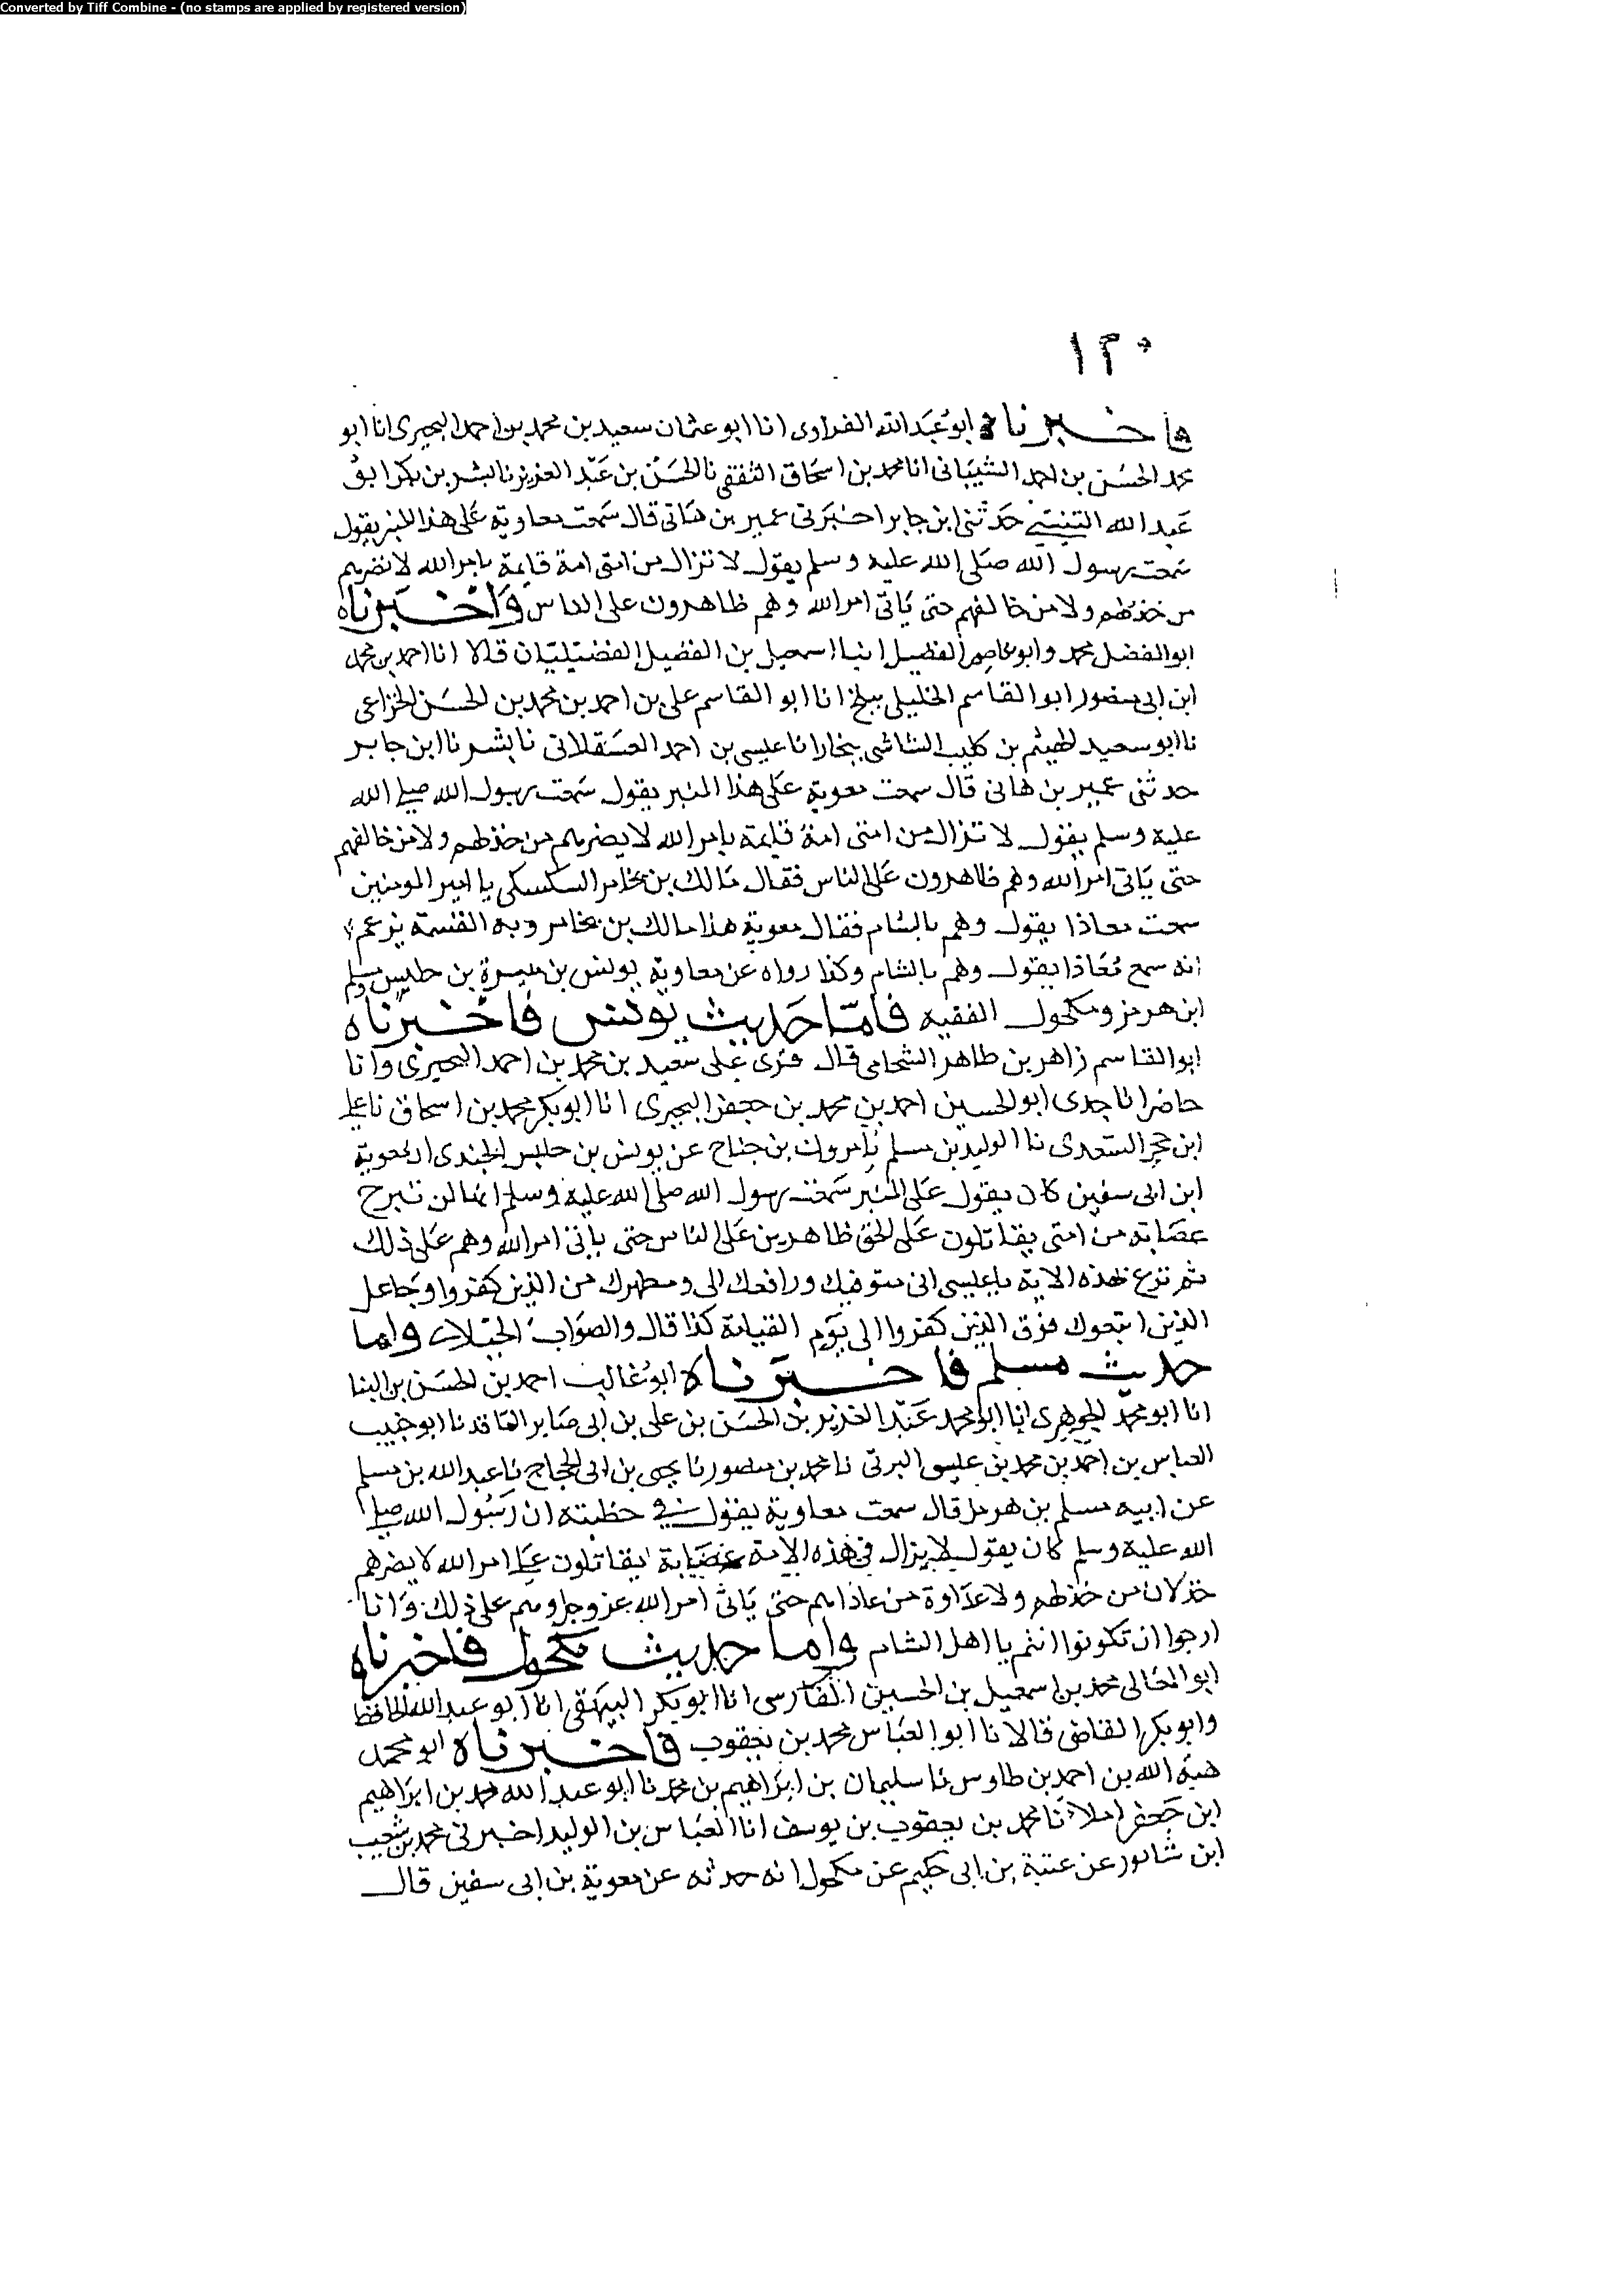 Converted by Tiff Combine - (no stamps are applied by registered version)
١٣٠
فاخبرناه ابو عبد الله الفراوى انا ابو عثمان سعيد بن محمد بن احمد البحيرى انا ابو
محمد الحسن بن احمد الشيبانى انا محمد بن اسحاق الثقفى نا الحسن بن عبد العزيز نا بشر بن بكر ابو
عبد الله التنيسى حدثنى ابن جابر اخبرنى عمير بن هانى قال سمعت معاوية على هذا المنبر يقول
سمعت رسول الله صلى الله عليه وسلم يقول لا تزال من امتى امة قايمة بامر الله لا يضرهم
من خذلهم ولا من خالفهم حتى ياتى امر الله وهم ظاهرون على الناس واخبرناه
ابو الفضل محمد وابو عاصم الفضيل ابنا اسمعيل بن الفضيل الفضيليان قالا انا احمد بن محمد
ابن ابى منصور ابو القاسم الخليلى ببلخ انا ابو القاسم على بن احمد بن محمد بن الحسن الخزاعى
نا ابو سعيد الهيثم بن كليب الشاشى ببخارا نا عيسى بن احمد العسقلانى نا بشر نا ابن جابر
حدثنى عمير بن هانى قال سمعت معوية على هذا المنبر يقول سمعت رسول الله صلى الله
عليه وسلم يقول لا تزال من امتى امة قايمة بامر الله لا يضرهم من خذلهم ولا من خالفهم
حتى ياتى امر الله وهم ظاهرون على الناس فقال مالك بن يخامر السكسكى يا امير المومنين
سمعت معاذا يقول وهم بالشام فقال معوية هذا مالك بن يخامر يزعم
انه سمع معاذا يقول وهم بالشام وكذا رواه عن معاوية يونس بن ميسرة بن حلبس ومسلم
ابن هرمز ومكحول الفقيه فاما حديث يونس فاخبرناه
ابو القاسم زاهر بن طاهر الشحامى قال قرى على سعيد بن محمد بن احمد البحيرى وانا
حاضر انا جدى ابو الحسين احمد بن محمد بن جعفر البحيرى انا ابو بكر محمد بن اسحاق نا على
ابن حجر السعدى نا الوليد بن مسلم نا مروك بن جناح عن يونس بن حلبس الجندى ان معوية
ابن ابى سفين كان يقول على المنبر سمعت رسول الله صلى الله عليه وسلم انها لن تبرح
عصابة من امتى يقاتلون على الحق ظاهرين على الناس حتى ياتى امر الله وهم على ذلك
ثم نزع بهذه الاية يا عيسى انى متوفيك ورافعك الى ومطهرك من الذين كفروا وجاعل
الذين اتبعوك فوق الذين كفروا الى يوم القيامة كذا قال والصواب الجبلانى واما
حديث مسلم فاخبرناه ابو غالب احمد بن الحسن بن البنا
انا ابو محمد الجوهرى انا ابو محمد عبد العزيز بن الحسن بن على بن ابى صابر الناقد نا ابو خبيب
العباس بن احمد بن محمد بن عيسى البرتى نا محمد بن منصور نا يحيى بن ابى الحجاج نا عبد الله بن مسلم
عن ابيه مسلم بن هرمز قال سمعت معاوية يقول فى خطبته ان رسول الله صلى
الله عليه وسلم كان يقول لا يزال فى هذه الامة عصابة يقاتلون على امر الله لا يضرهم
خذلان من خذلهم ولا عداوة من عاداهم حتى ياتى امر الله عز وجل وهم على ذلك وانا
ارجوا ان تكونوا انتم يا اهل الشام واما حديث مكحول فاخبرناه
ابو المعالى محمد بن اسمعيل بن الحسين الفارسى انا ابو بكر البيهقى انا ابو عبد الله الحافظ
وابو بكر القاضى قالا نا ابو العباس محمد بن يعقوب فاخبرناه ابو محمد
هبة الله بن احمد بن طاوس نا سليمان بن ابراهيم بن محمد نا ابو عبد الله محمد بن ابراهيم
ابن جعفر املاء نا محمد بن يعقوب بن يوسف انا العباس بن الوليد اخبرنى محمد بن شعيب
ابن شابور عن عتبة بن ابى حكيم عن مكحول انه حدثه عن معوية بن ابى سفين قال